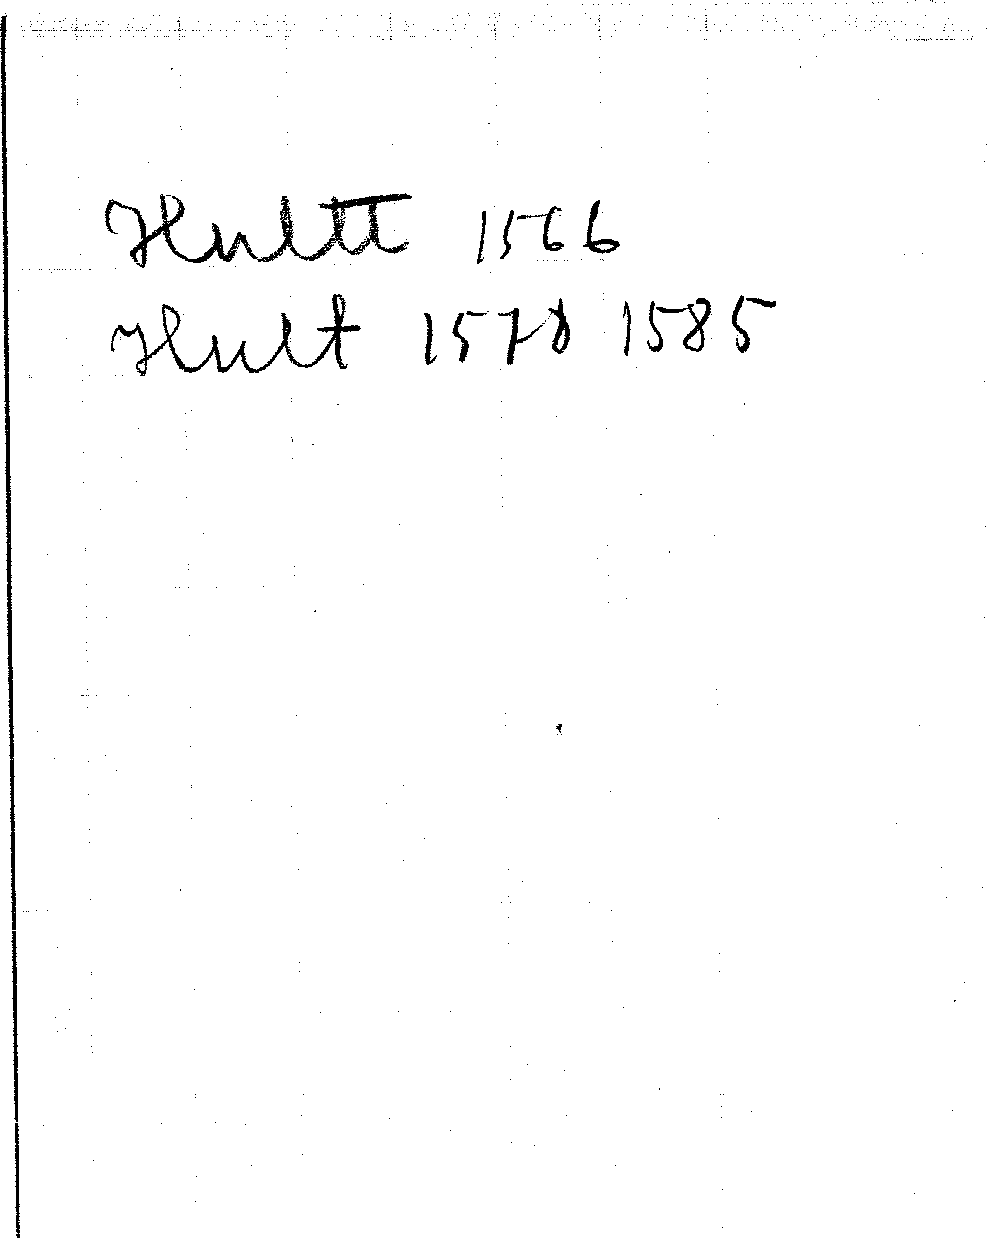 Hultt 1566
Hult 1578 1585